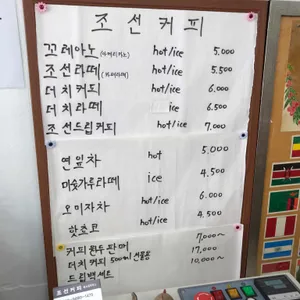 조선커피
꼬레아노(아메리카노) hot/ice 5,000
조선라떼(카페라떼) hot/ice 5,500
더치커피 hot/ice 6,000
더치라떼 ice 6,500
조선드립커피 hot/ice 7,000
연잎차 hot 5,000
미숫가루라떼 ice 4,500
오미자차 hot/ice 6,000
핫초코 hot/ice 4,500
커피 원두판매 7,000~
더치커피 500ml 선물용 17,000
드립백세트 10,000~
조선커피